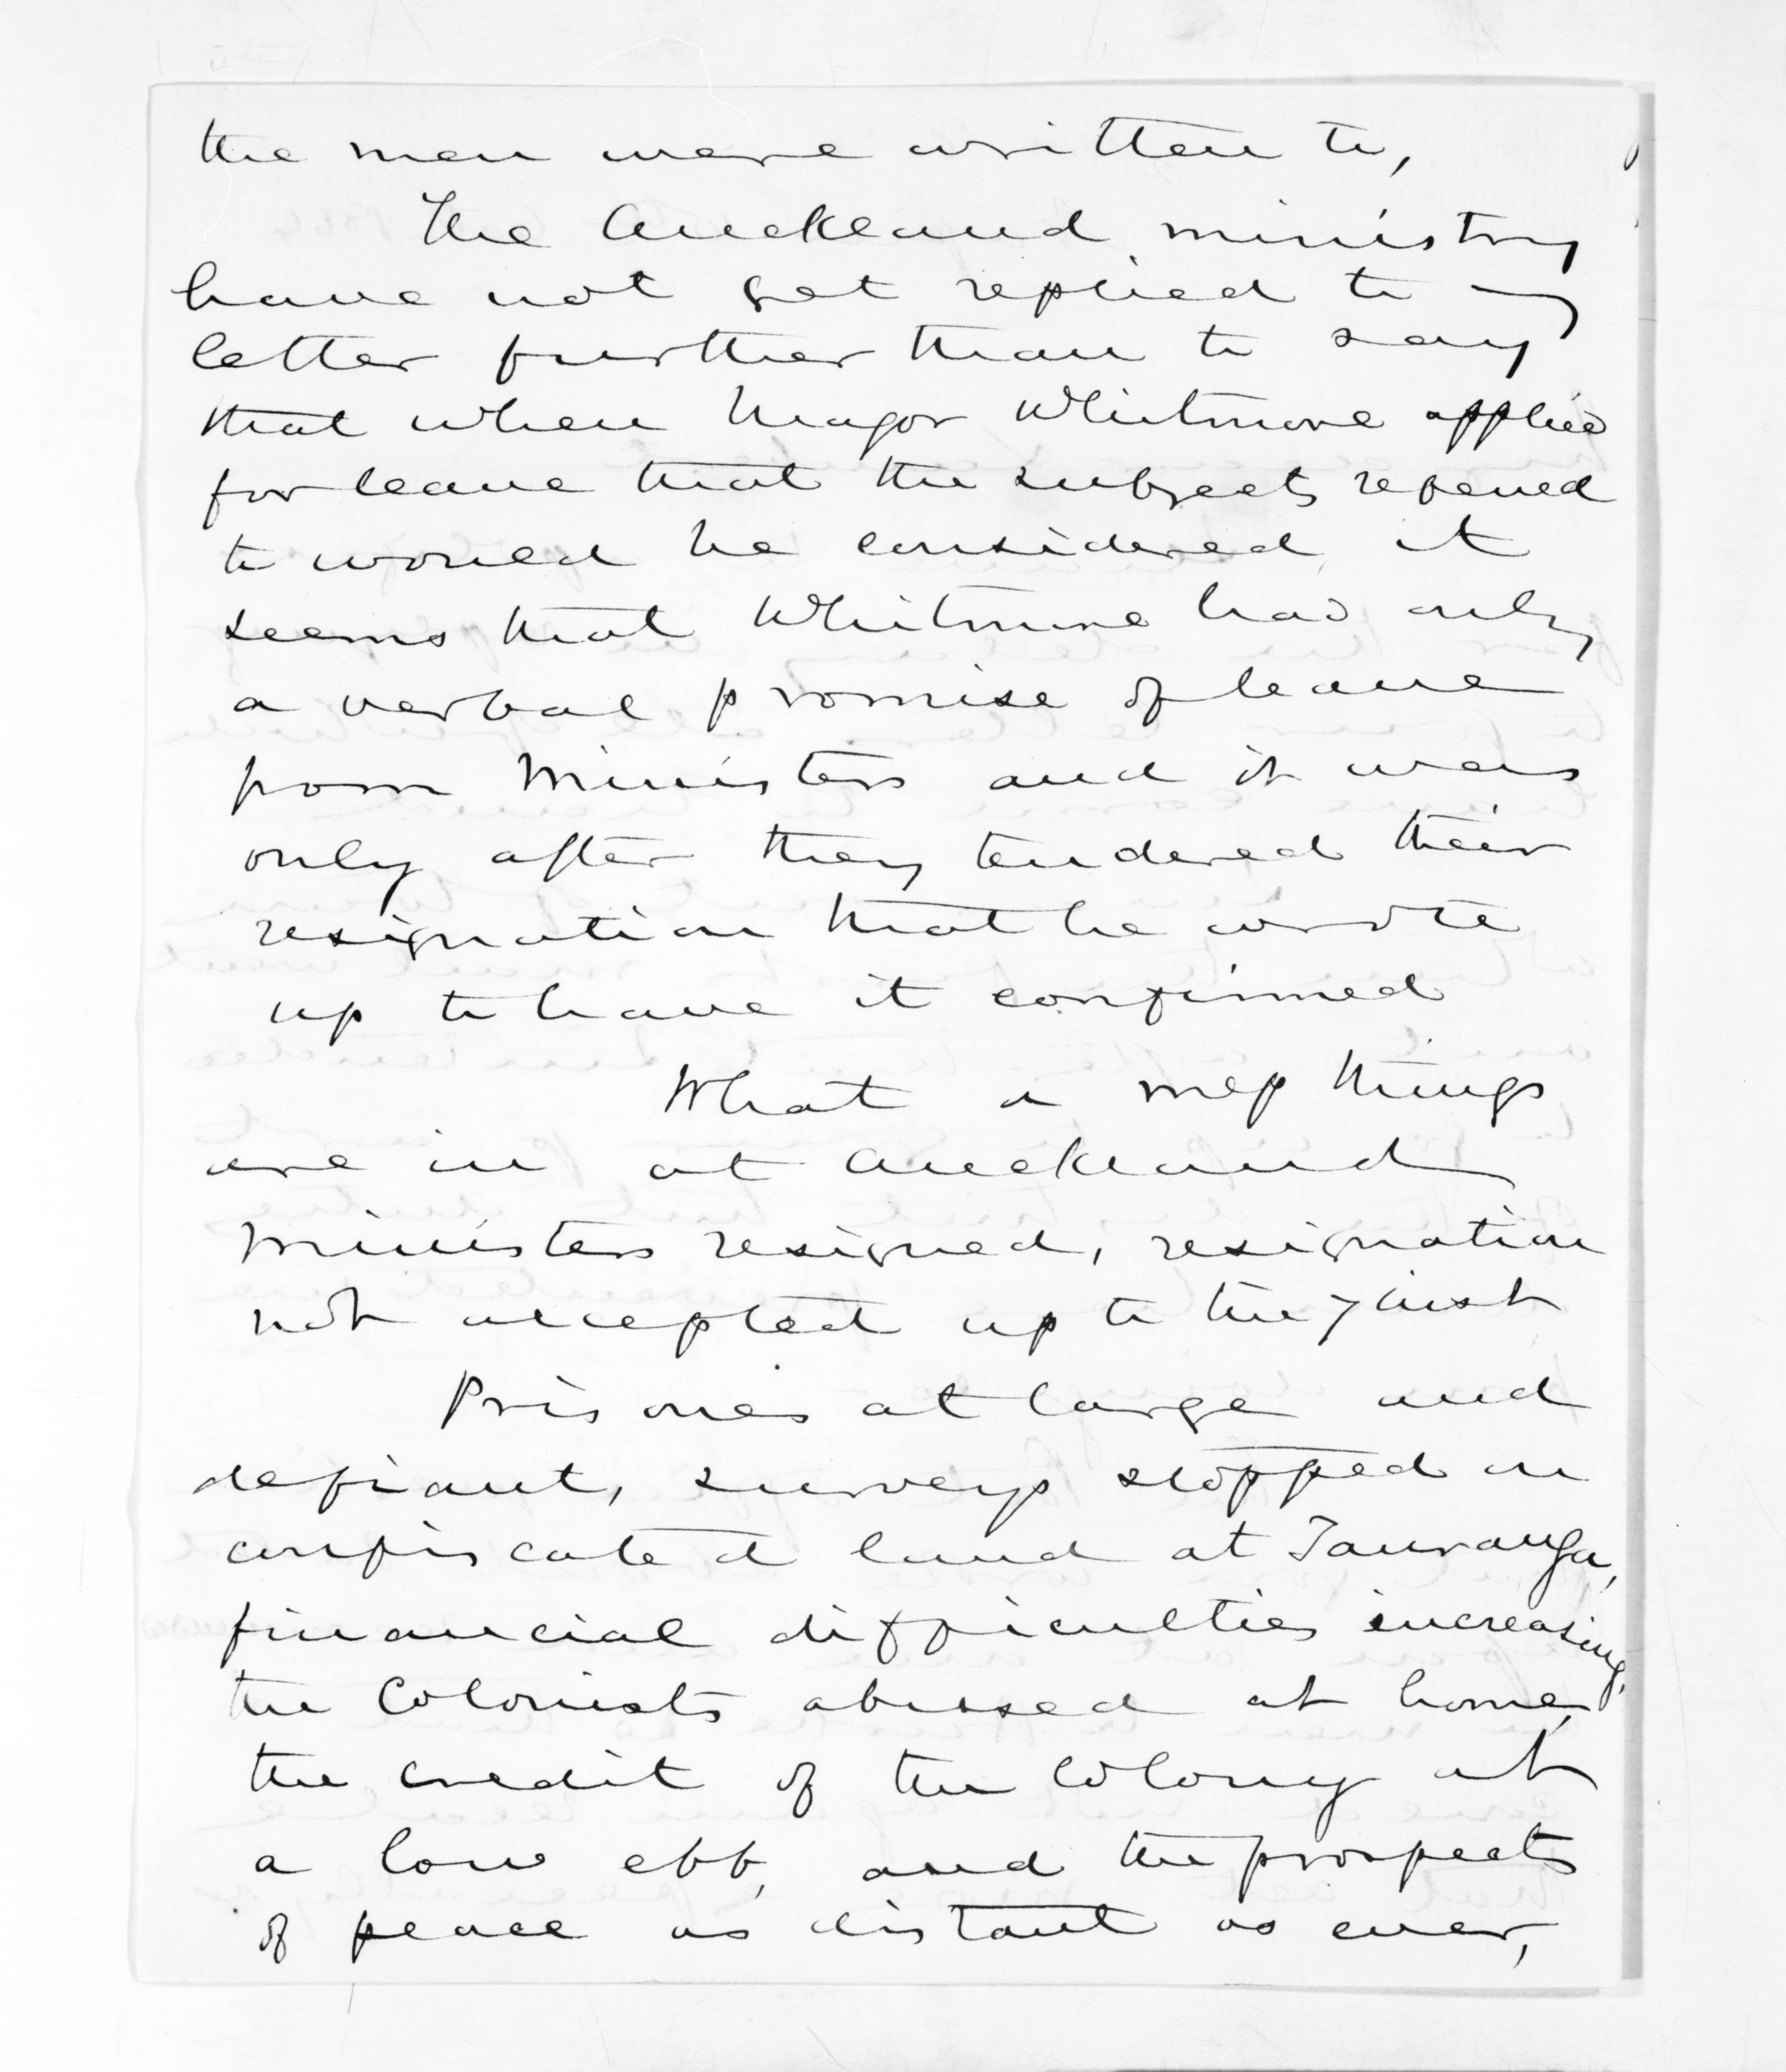 the men were written to,
The Auckland ministry
have not yet replied to my
letter further than to say
that when Major Whitmore applied
for leave that the subjects refered
to would be considered, it
seems that Whitmore had only
a verbal promise of leave
from Ministers and it was
only after they tendered their
resignation that he wrote
up to have it confirmed
What a mess things
are in at Auckland
Ministers resigned, resignation
not accepted up to the 7 inst
Prisones at large and
defiant, surveys stopped on
confiscated land at Tauranga,
financial difficulties increasing,
the Colonists abused at home,
the credit of the Colony at
a low ebb, and the prospects
of peace as distant as ever,